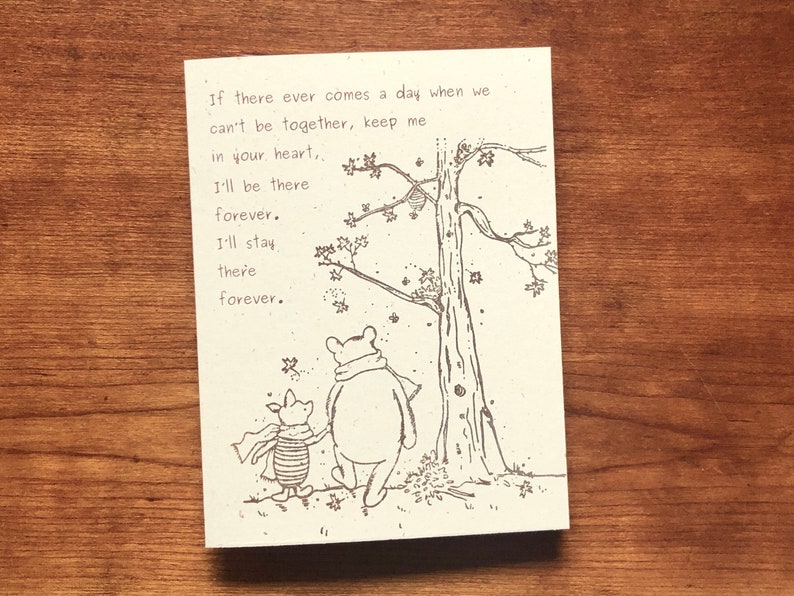 If there ever comes a day when we
can't be together, keep me
in your heart,
I'll be there
forever.
I'll stay
there
forever.